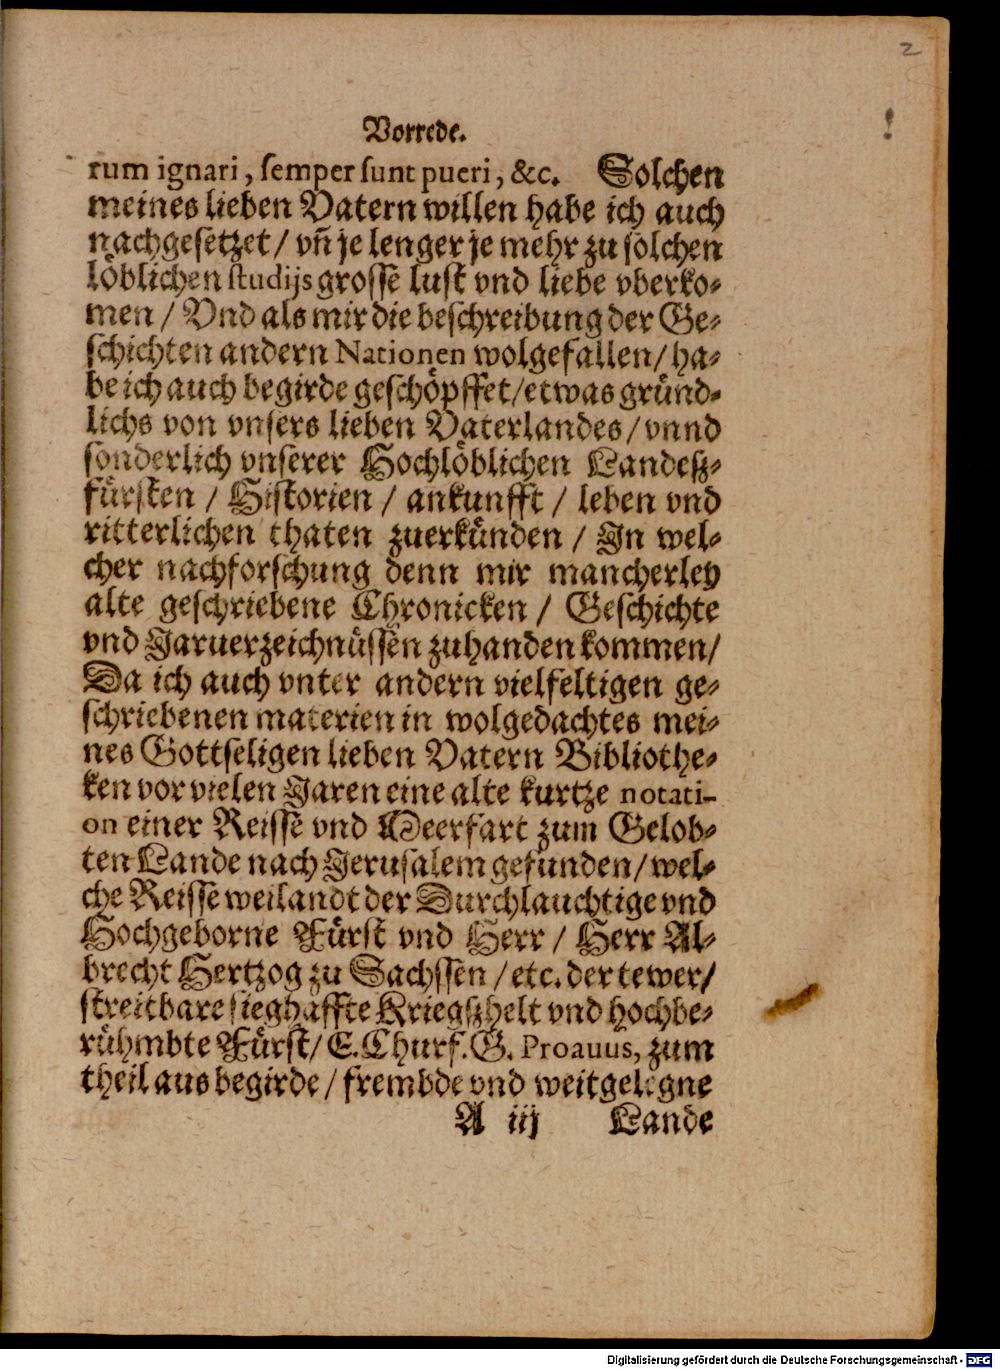 2
Vorrede.
rum ignari, semper sunt pueri, &c. Solchen
meines lieben Vatern willen habe ich auch
nachgesetzet / vñ je lenger je mehr zu solchen
löblichen studijs grosse lust vnd liebe vberko-
men / Vnd als mir die beschreibung der Ge-
schichten andern Nationen wolgefallen / ha-
be ich auch begirde geschöpffet / etwas gründ-
lichs von vnsers lieben Vaterlandes / vnnd
sonderlich vnserer Hochlöblichen Landesz-
fürsten / Historien / ankunfft / leben vnd
ritterlichen thaten zuerkünden / In wel-
cher nachforschung denn mir mancherley
alte geschriebene Chronicken / Geschichte
vnd Jaruerzeichnüssen zuhanden kommen /
Da ich auch vnter andern vielfeltigen ge-
schriebenen materien in wolgedachtes mei-
nes Gottseligen lieben Vatern Bibliothe-
ken vor vielen Jaren eine alte kurtze notati-
on einer Reisse vnd Meerfart zum Gelob-
ten Lande nach Jerusalem gefunden / wel-
che Reisse weilandt der Durchlauchtige vnd
Hochgeborne Fürst vnd Herr / Herr Al-
brecht Hertzog zu Sachssen / etc. der tewer /
streitbare sieghaffte Kriegszhelt vnd hochbe-
rühmbte Fürst / E. Churf. G. Proauus, zum
theil aus begirde / frembde vnd weitgelegne
A iij Lande
Digitalisierung gefördert durch die Deutsche Forschungsgemeinschaft - DFG